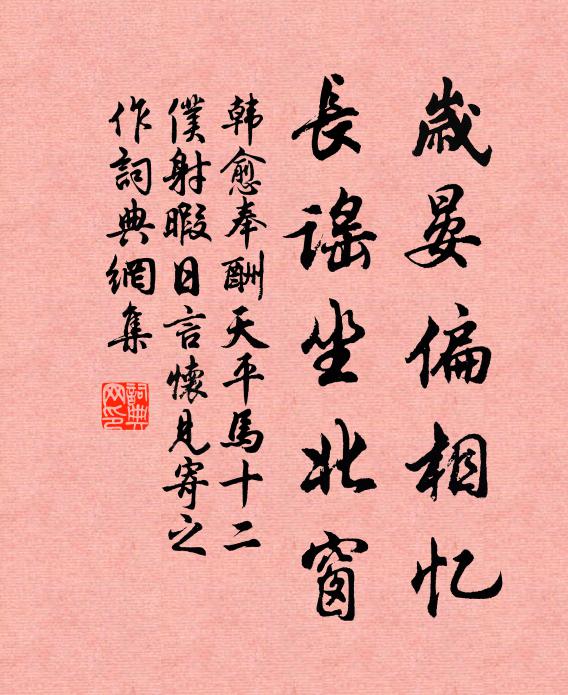 歲晏偏相忆
長謠坐北窗
韩愈奉酬天平馬十二
僕射暇日言懷見寄之
作詞典網集
詞典
网印